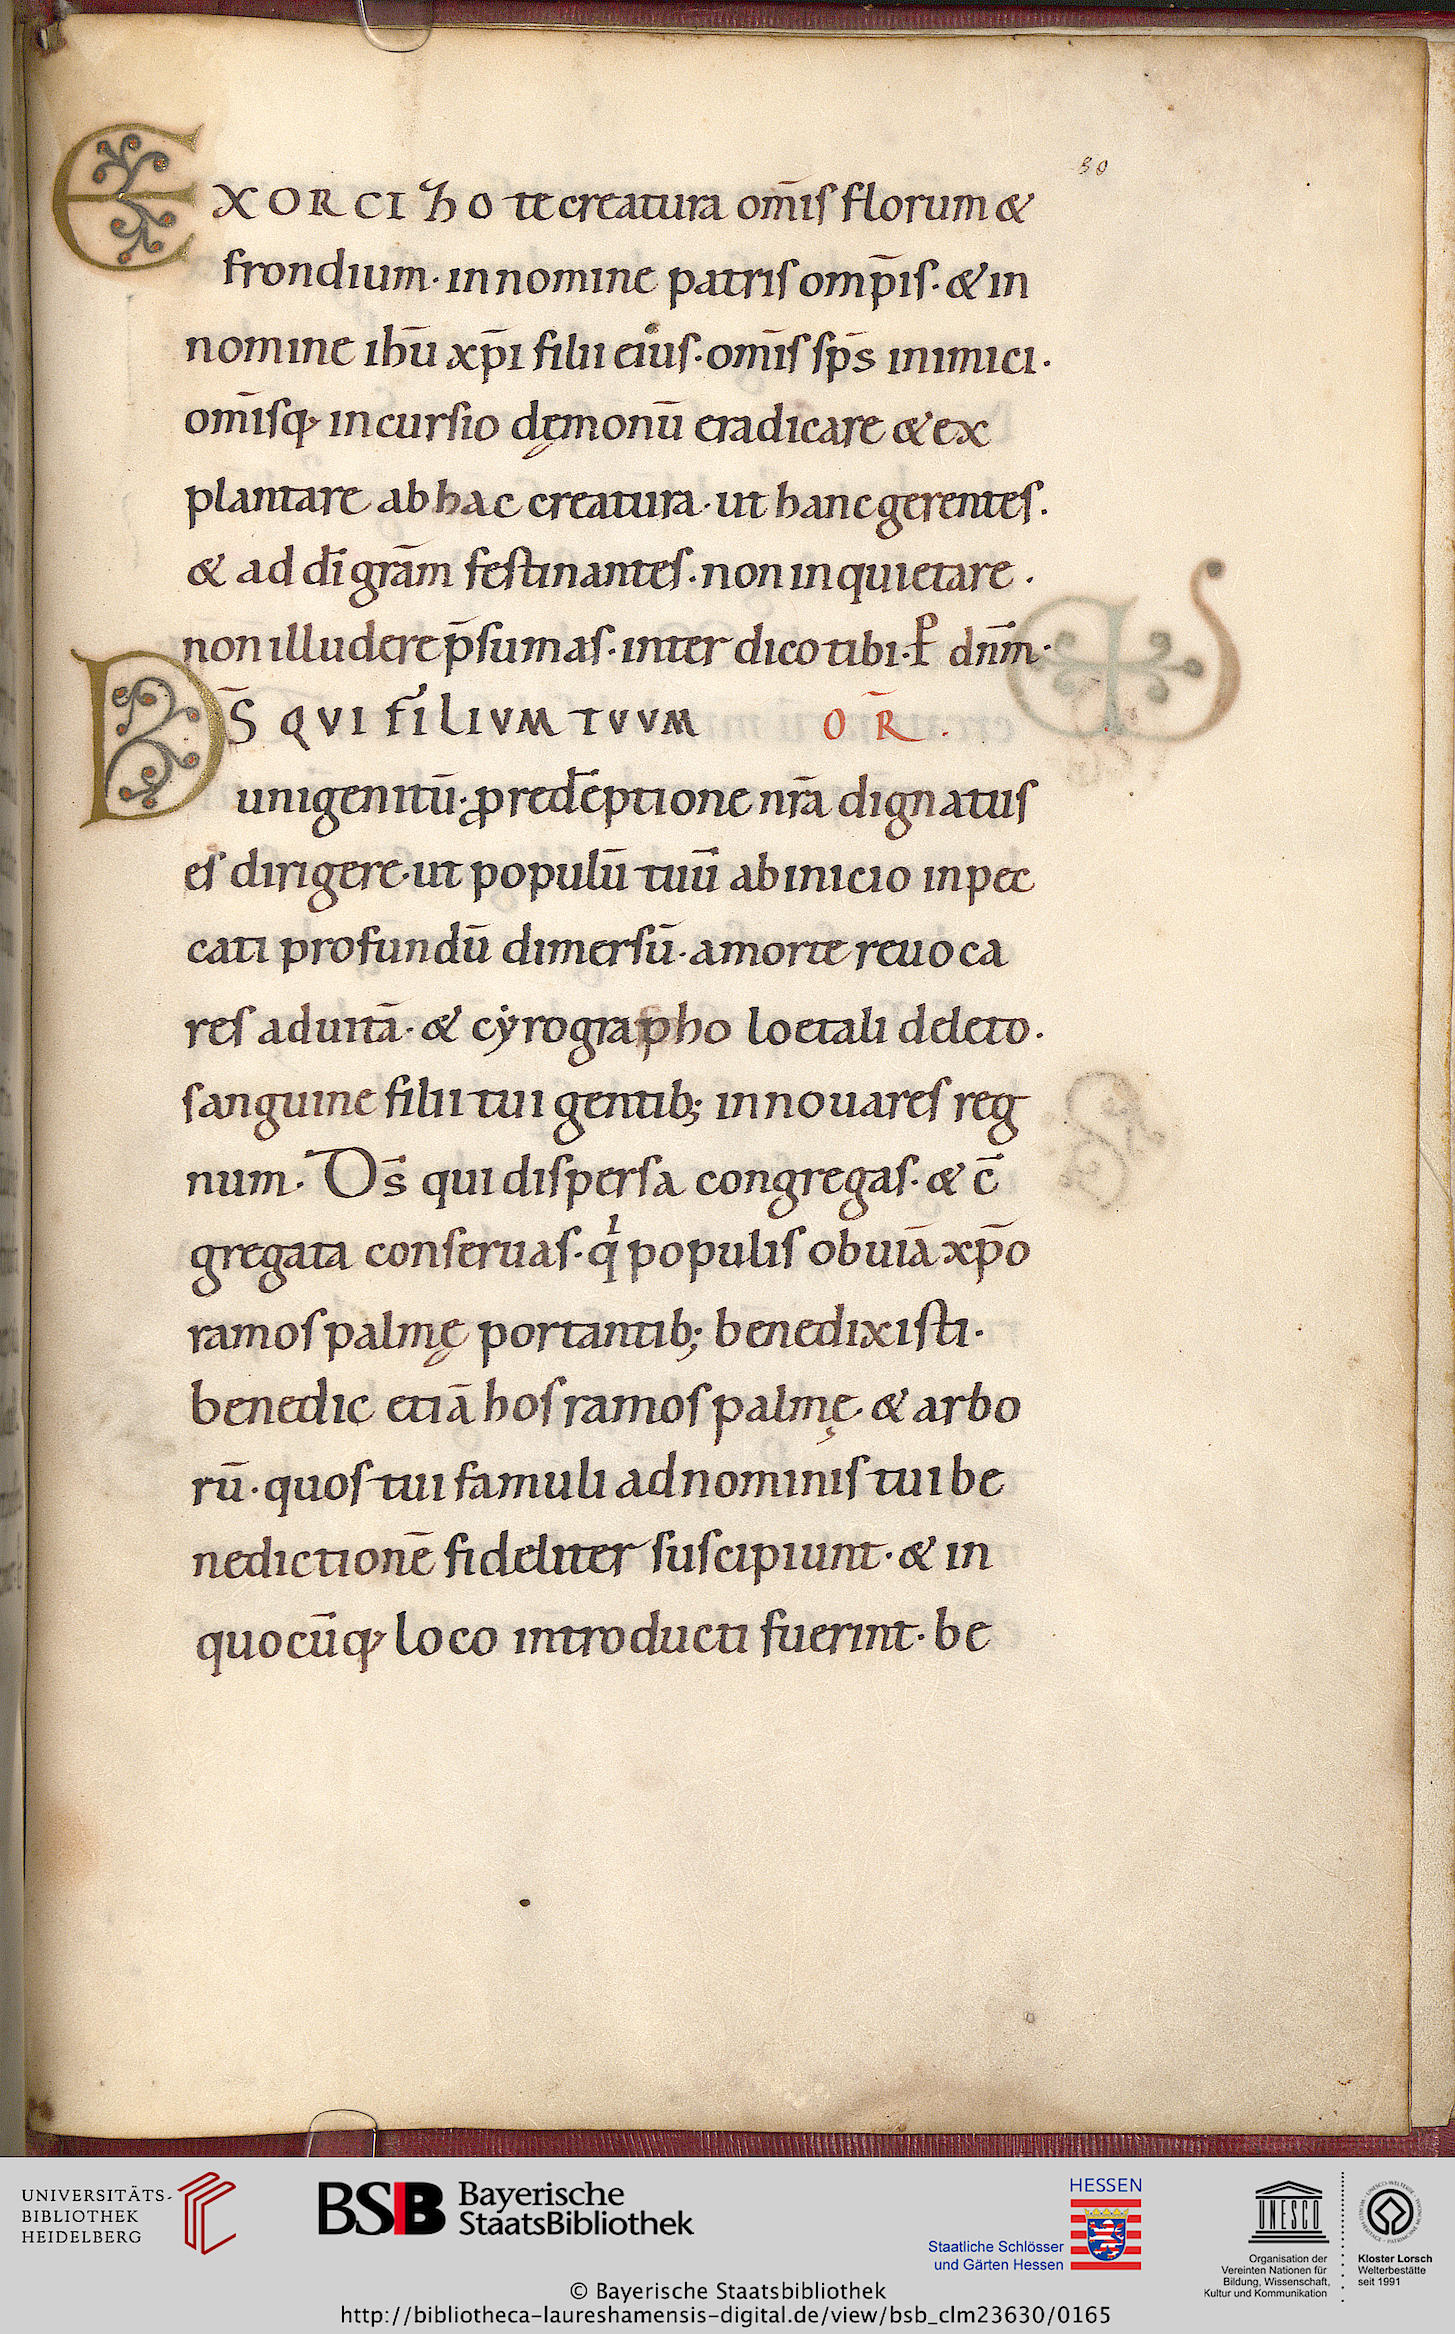 80
EXORCIZO te creatura om̄is florum &
frondium· in nomine patris omp̄is· & in
nomine ih̄u xp̄i filii eius· om̄is sp̄s inimici·
om̄isq; incursio dęmonū eradicare & ex
plantare ab hac creatura· ut hanc gerentes·
& ad dī grām festinantes· non inquietare·
non illudere p̄sumas· interdico tibi· ꝑ dn̄m·
DS̄ QVI FILIVM TVVM OR̄.
unigenitū· ꝓ redēptione nr̄a dignatus
es dirigere· ut populū tuū ab inicio in pec
cati profundū dimersū· a morte reuoca
res ad uitā· & cẏrographo loetali deleto·
sanguine filii tui gentib; innouares reg
num· Ds̄ qui dispersa congregas· & c̄
gregata conseruas· qi populis obuiā xp̄o
ramos palmę portantib; benedixisti·
benedic etiā hos ramos palmę· & arbo
rū· quos tui famuli ad nominis tui be
nedictionē fideliter suscipiunt· & in
quocūq; loco introducti fuerint· be
UNIVERSITÄTS-
BIBLIOTHEK
HEIDELBERG
BSB Bayerische
StaatsBibliothek
HESSEN
Staatliche Schlösser
und Gärten Hessen
UNESCO
Organisation der
Vereinten Nationen für
Bildung, Wissenschaft,
Kultur und Kommunikation
Kloster Lorsch
Welterbestätte
seit 1991
© Bayerische Staatsbibliothek
http://bibliotheca-laureshamensis-digital.de/view/bsb_clm23630/0165